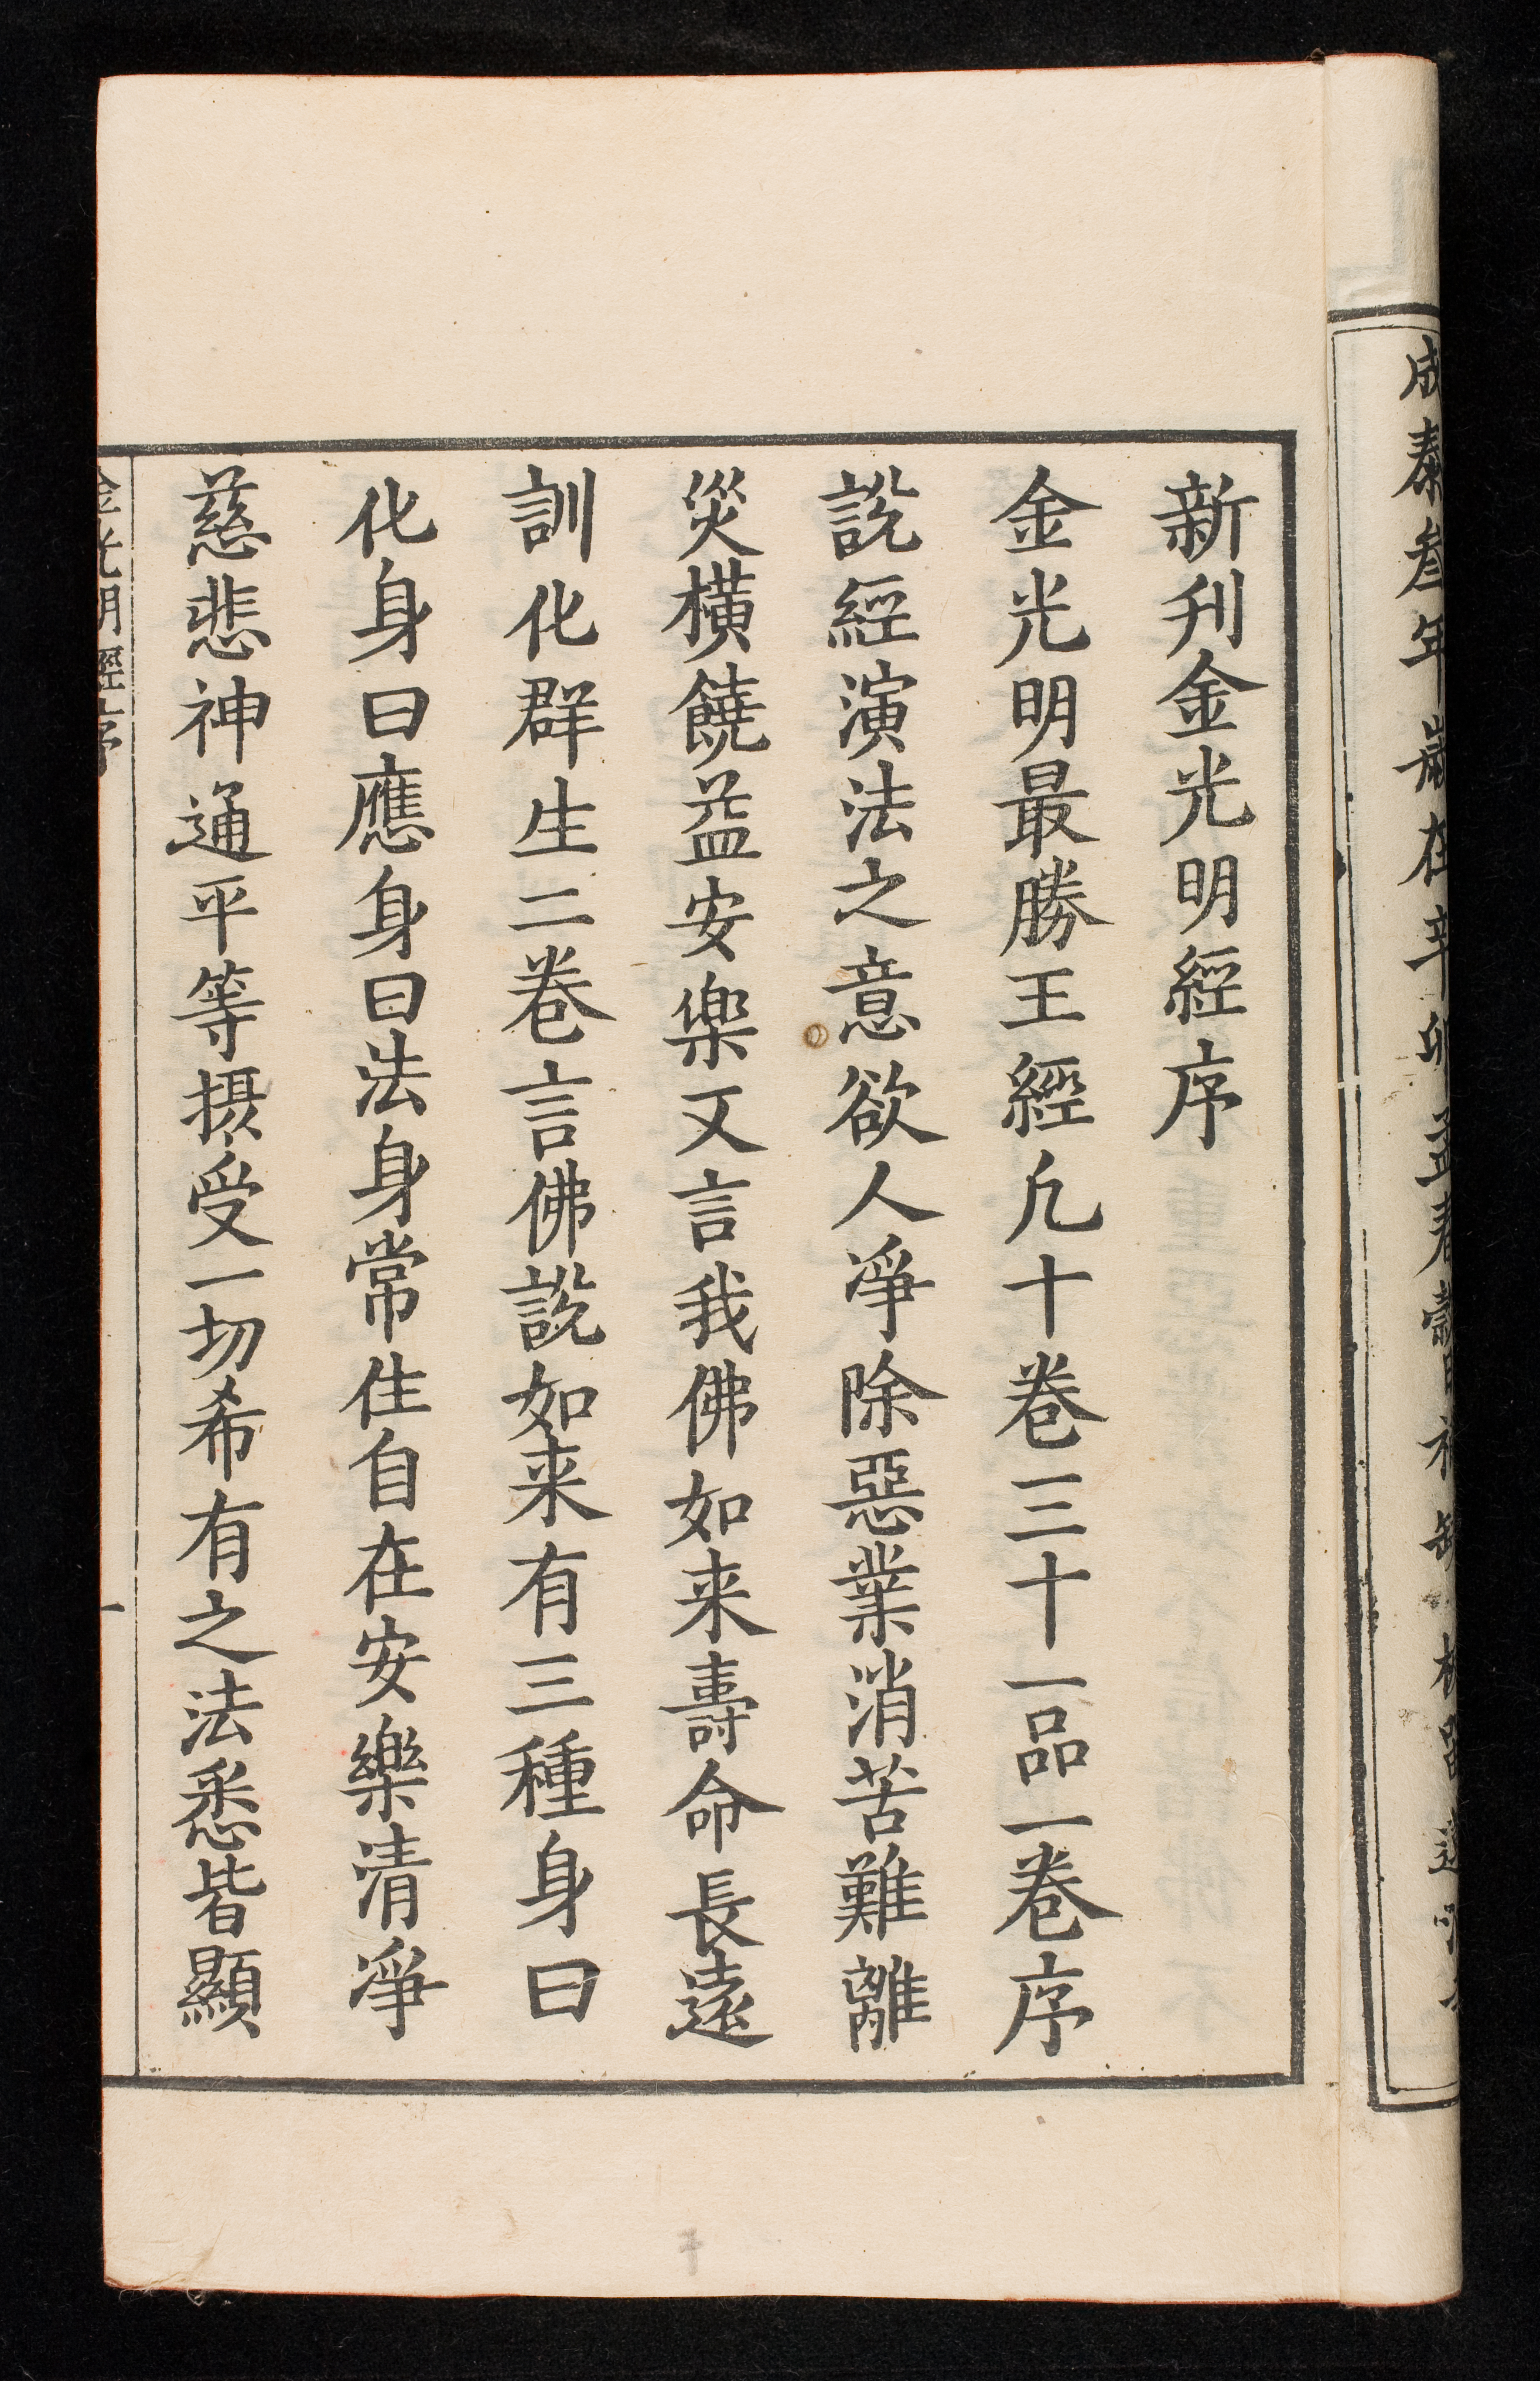 成泰叁年歲在辛卯孟春
新刋金光明經序
金光明最勝王經凢十卷三十一品一卷序
說經演法之意欲人凈除惡業消苦難離
災橫饒益安楽又言我佛如来壽命長遠
訓化群生二卷言佛說如来有三種身曰
化身曰應身曰法身常住自在安樂清凈
慈悲神通平等摂受一切希有之法悉皆顯
金光明經序
一